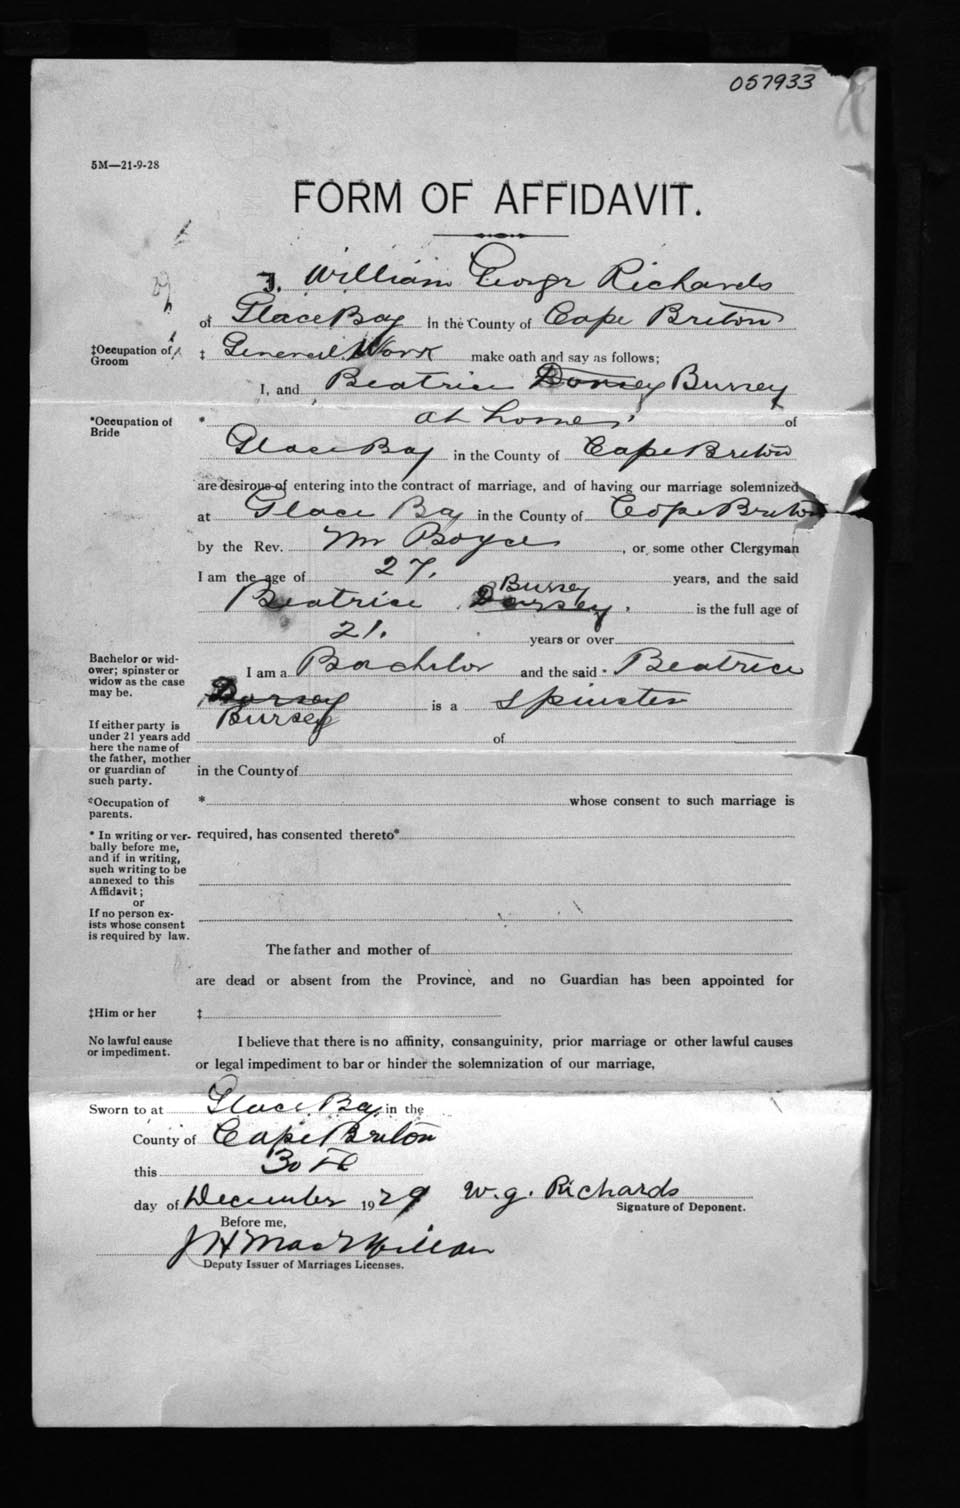 057933
5M—21-9-28
FORM OF AFFIDAVIT.
I, William George Richards
of Glace Bay in the County of Cape Breton
‡Occupation of Groom ‡ General Work make oath and say as follows;
I, and Beatrice Dorsey Bursey
*Occupation of Bride * at home of
Glace Bay in the County of Cape Breton
are desirous of entering into the contract of marriage, and of having our marriage solemnized
at Glace Bay in the County of Cape Breton
by the Rev. Mr Boyce, or some other Clergyman
I am the age of 27. years, and the said
Bursey
Beatrice Dorsey. is the full age of
21. years or over
Bachelor or widower; spinster or widow as the case may be. I am a Bachelor and the said Beatrice
Dorsey is a Spinster
Bursey
If either party is under 21 years add here the name of the father, mother or guardian of such party. of
in the County of
*Occupation of parents. * whose consent to such marriage is
* In writing or verbally before me, and if in writing, such writing to be annexed to this Affidavit; or If no person exists whose consent is required by law. required, has consented thereto*
The father and mother of
are dead or absent from the Province, and no Guardian has been appointed for
‡Him or her ‡
No lawful cause or impediment. I believe that there is no affinity, consanguinity, prior marriage or other lawful causes
or legal impediment to bar or hinder the solemnization of our marriage,
Sworn to at Glace Bay in the
County of Cape Breton
this 30th
day of December 1929 W. G. Richards
Signature of Deponent.
Before me,
J H MacMillan
Deputy Issuer of Marriages Licenses.